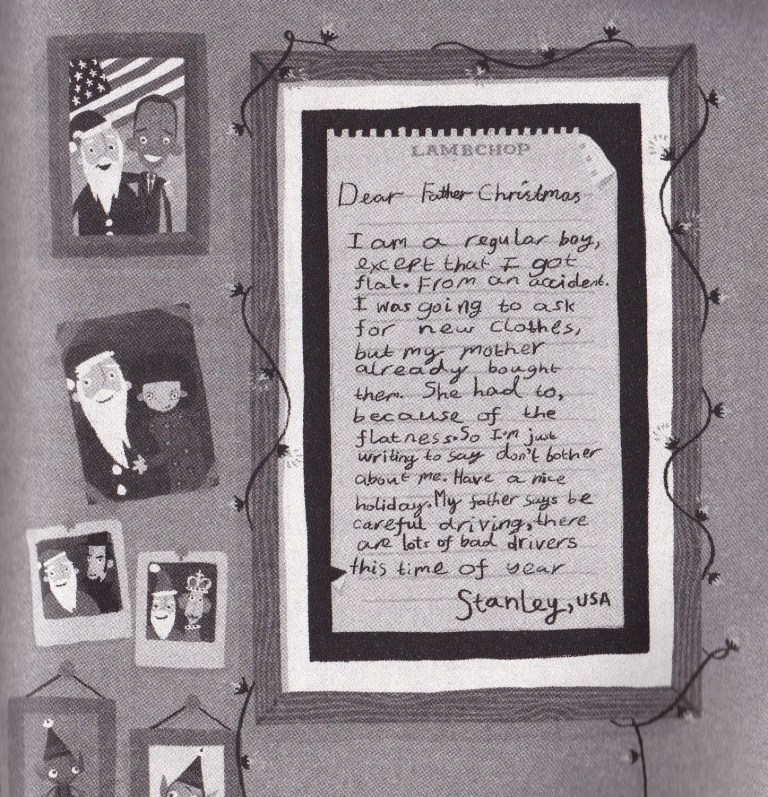 LAMBCHOP
Dear Father Christmas
I am a regular boy,
except that I got
flat. From an accident.
I was going to ask
for new clothes,
but my mother
already bought
them. She had to,
because of the
flatness. So I'm just
writing to say don't bother
about me. Have a nice
holiday. My father says be
careful driving, there
are lots of bad drivers
this time of year
Stanley, USA